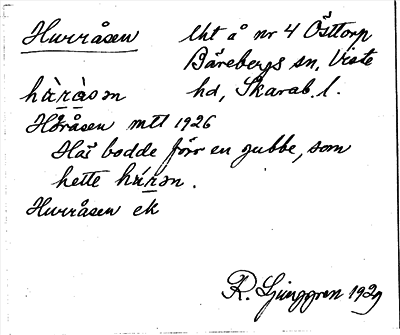 Hurråsen
Uht å nr 4 Östtorp
Bärebergs sn, Viste
hd, Skarab. l.
hùràsɷn
Høråsen mtl 1926
Här bodde förr en gubbe, som
hette húrɷn.
Hurråsen ek
R. Ljunggren 1929